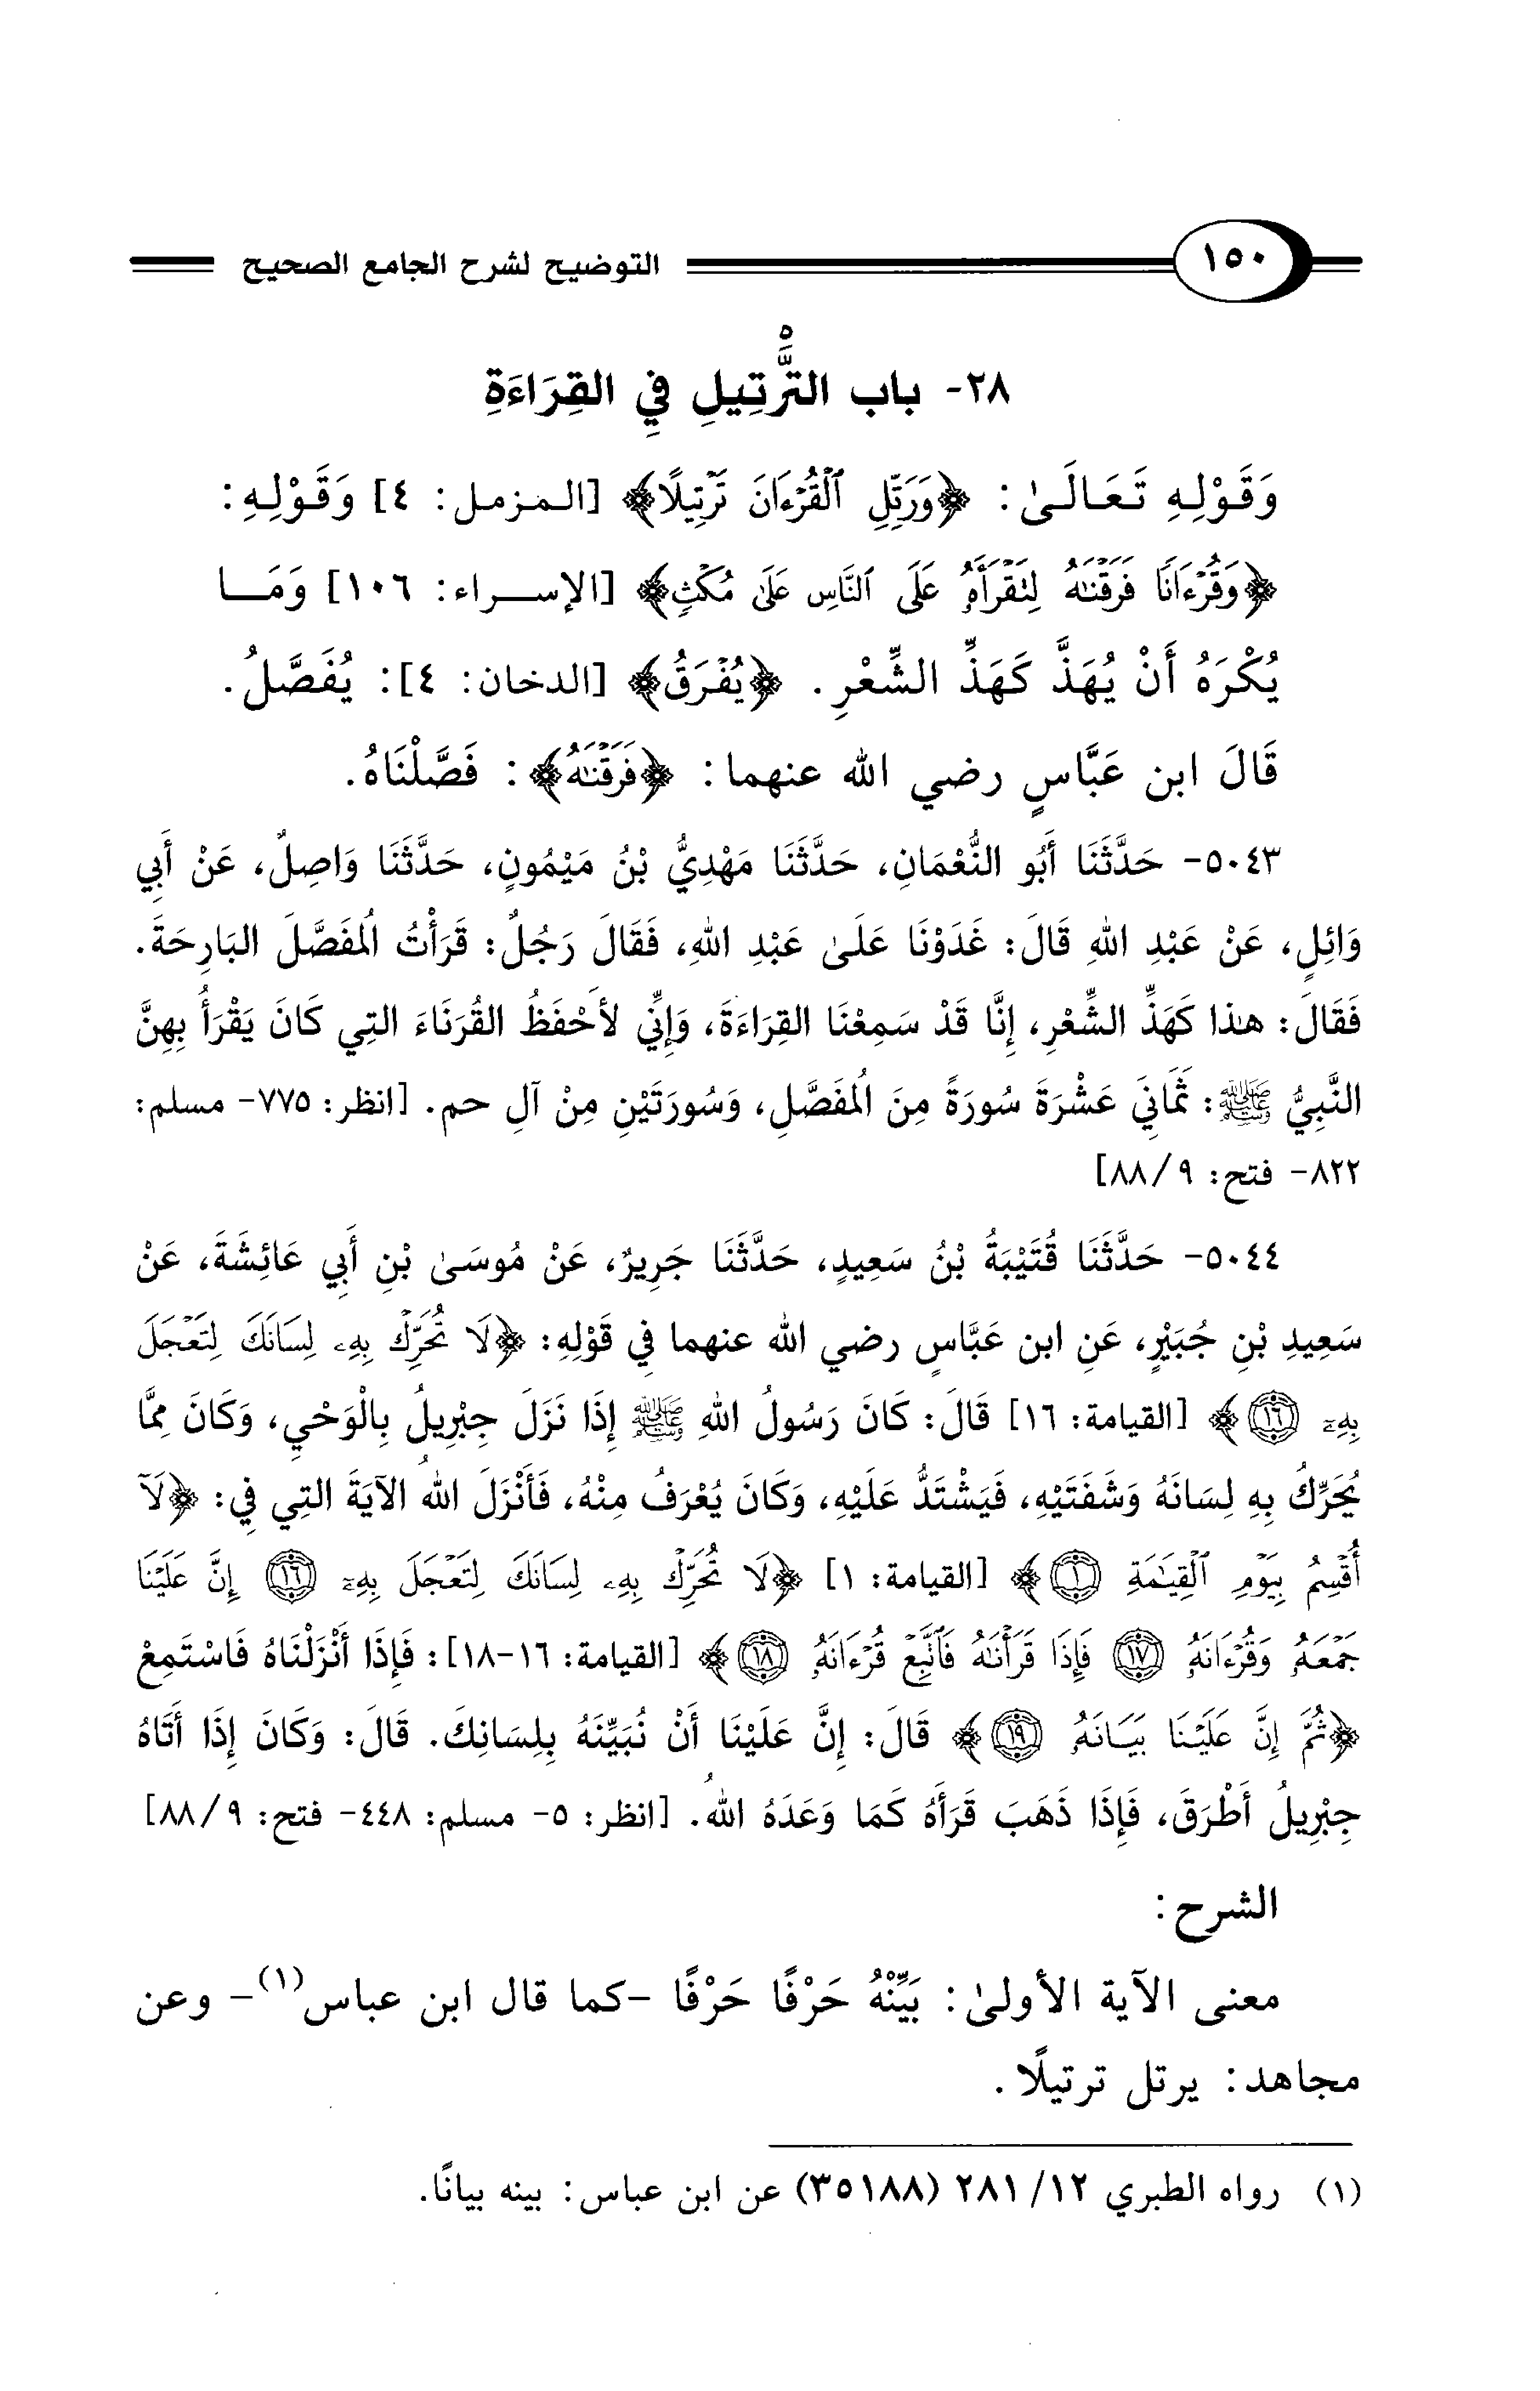 ١٥٠ التوضيح لشرح الجامع الصحيح
٢٨- باب التَّرْتِيلِ فِي القِرَاءَةِ
وَقَوْلِهِ تَعَالَىٰ: ﴿وَرَتِّلِ ٱلْقُرْءَانَ تَرْتِيلًا﴾ [المزمل: ٤] وَقَوْلِهِ:
﴿وَقُرْءَانًا فَرَقْنَٰهُ لِتَقْرَأَهُۥ عَلَى ٱلنَّاسِ عَلَىٰ مُكْثٍ﴾ [الإسراء: ١٠٦] وَمَا
يُكْرَهُ أَنْ يُهَذَّ كَهَذِّ الشِّعْرِ. ﴿يُفْرَقُ﴾ [الدخان: ٤]: يُفَصَّلُ.
قَالَ ابن عَبَّاسٍ رضي الله عنهما: ﴿فَرَقْنَٰهُ﴾: فَصَّلْنَاهُ.
٥٠٤٣- حَدَّثَنَا أَبُو النُّعْمَانِ، حَدَّثَنَا مَهْدِيُّ بْنُ مَيْمُونٍ، حَدَّثَنَا وَاصِلٌ، عَنْ أَبِي
وَائِلٍ، عَنْ عَبْدِ اللهِ قَالَ: غَدَوْنَا عَلَىٰ عَبْدِ اللهِ، فَقَالَ رَجُلٌ: قَرَأْتُ المُفَصَّلَ البَارِحَةَ.
فَقَالَ: هذا كَهَذِّ الشِّعْرِ، إِنَّا قَدْ سَمِعْنَا القِرَاءَةَ، وَإِنِّي لأَحْفَظُ القُرَنَاءَ التِي كَانَ يَقْرَأُ بِهِنَّ
النَّبِيُّ ﷺ: ثَمَانِيَ عَشْرَةَ سُورَةً مِنَ المُفَصَّلِ، وَسُورَتَيْنِ مِنْ آلِ حم. [انظر: ٧٧٥- مسلم:
٨٢٢- فتح: ٩/ ٨٨]
٥٠٤٤- حَدَّثَنَا قُتَيْبَةُ بْنُ سَعِيدٍ، حَدَّثَنَا جَرِيرٌ، عَنْ مُوسَىٰ بْنِ أَبِي عَائِشَةَ، عَنْ
سَعِيدِ بْنِ جُبَيْرٍ، عَنِ ابن عَبَّاسٍ رضي الله عنهما فِي قَوْلِهِ: ﴿لَا تُحَرِّكْ بِهِۦ لِسَانَكَ لِتَعْجَلَ
بِهِۦٓ ١٦﴾ [القيامة: ١٦] قَالَ: كَانَ رَسُولُ اللهِ ﷺ إِذَا نَزَلَ جِبْرِيلُ بِالْوَحْيِ، وَكَانَ مِمَّا
يُحَرِّكُ بِهِ لِسَانَهُ وَشَفَتَيْهِ، فَيَشْتَدُّ عَلَيْهِ، وَكَانَ يُعْرَفُ مِنْهُ، فَأَنْزَلَ اللهُ الآيَةَ التِي فِي: ﴿لَآ
أُقْسِمُ بِيَوْمِ ٱلْقِيَٰمَةِ ١﴾ [القيامة: ١] ﴿لَا تُحَرِّكْ بِهِۦ لِسَانَكَ لِتَعْجَلَ بِهِۦٓ ١٦ إِنَّ عَلَيْنَا
جَمْعَهُۥ وَقُرْءَانَهُۥ ١٧ فَإِذَا قَرَأْنَٰهُ فَٱتَّبِعْ قُرْءَانَهُۥ ١٨﴾ [القيامة: ١٦-١٨]: فَإِذَا أَنْزَلْنَاهُ فَاسْتَمِعْ
﴿ثُمَّ إِنَّ عَلَيْنَا بَيَانَهُۥ ١٩﴾ قَالَ: إِنَّ عَلَيْنَا أَنْ نُبَيِّنَهُ بِلِسَانِكَ. قَالَ: وَكَانَ إِذَا أَتَاهُ
جِبْرِيلُ أَطْرَقَ، فَإِذَا ذَهَبَ قَرَأَهُ كَمَا وَعَدَهُ اللهُ. [انظر: ٥- مسلم: ٤٤٨- فتح: ٩/ ٨٨]
الشرح:
معنى الآية الأولىٰ: بَيِّنْهُ حَرْفًا حَرْفًا -كما قال ابن عباس(١)- وعن
مجاهد: يرتل ترتيلًا.
(١) رواه الطبري ١٢/ ٢٨١ (٣٥١٨٨) عن ابن عباس: بينه بيانًا.